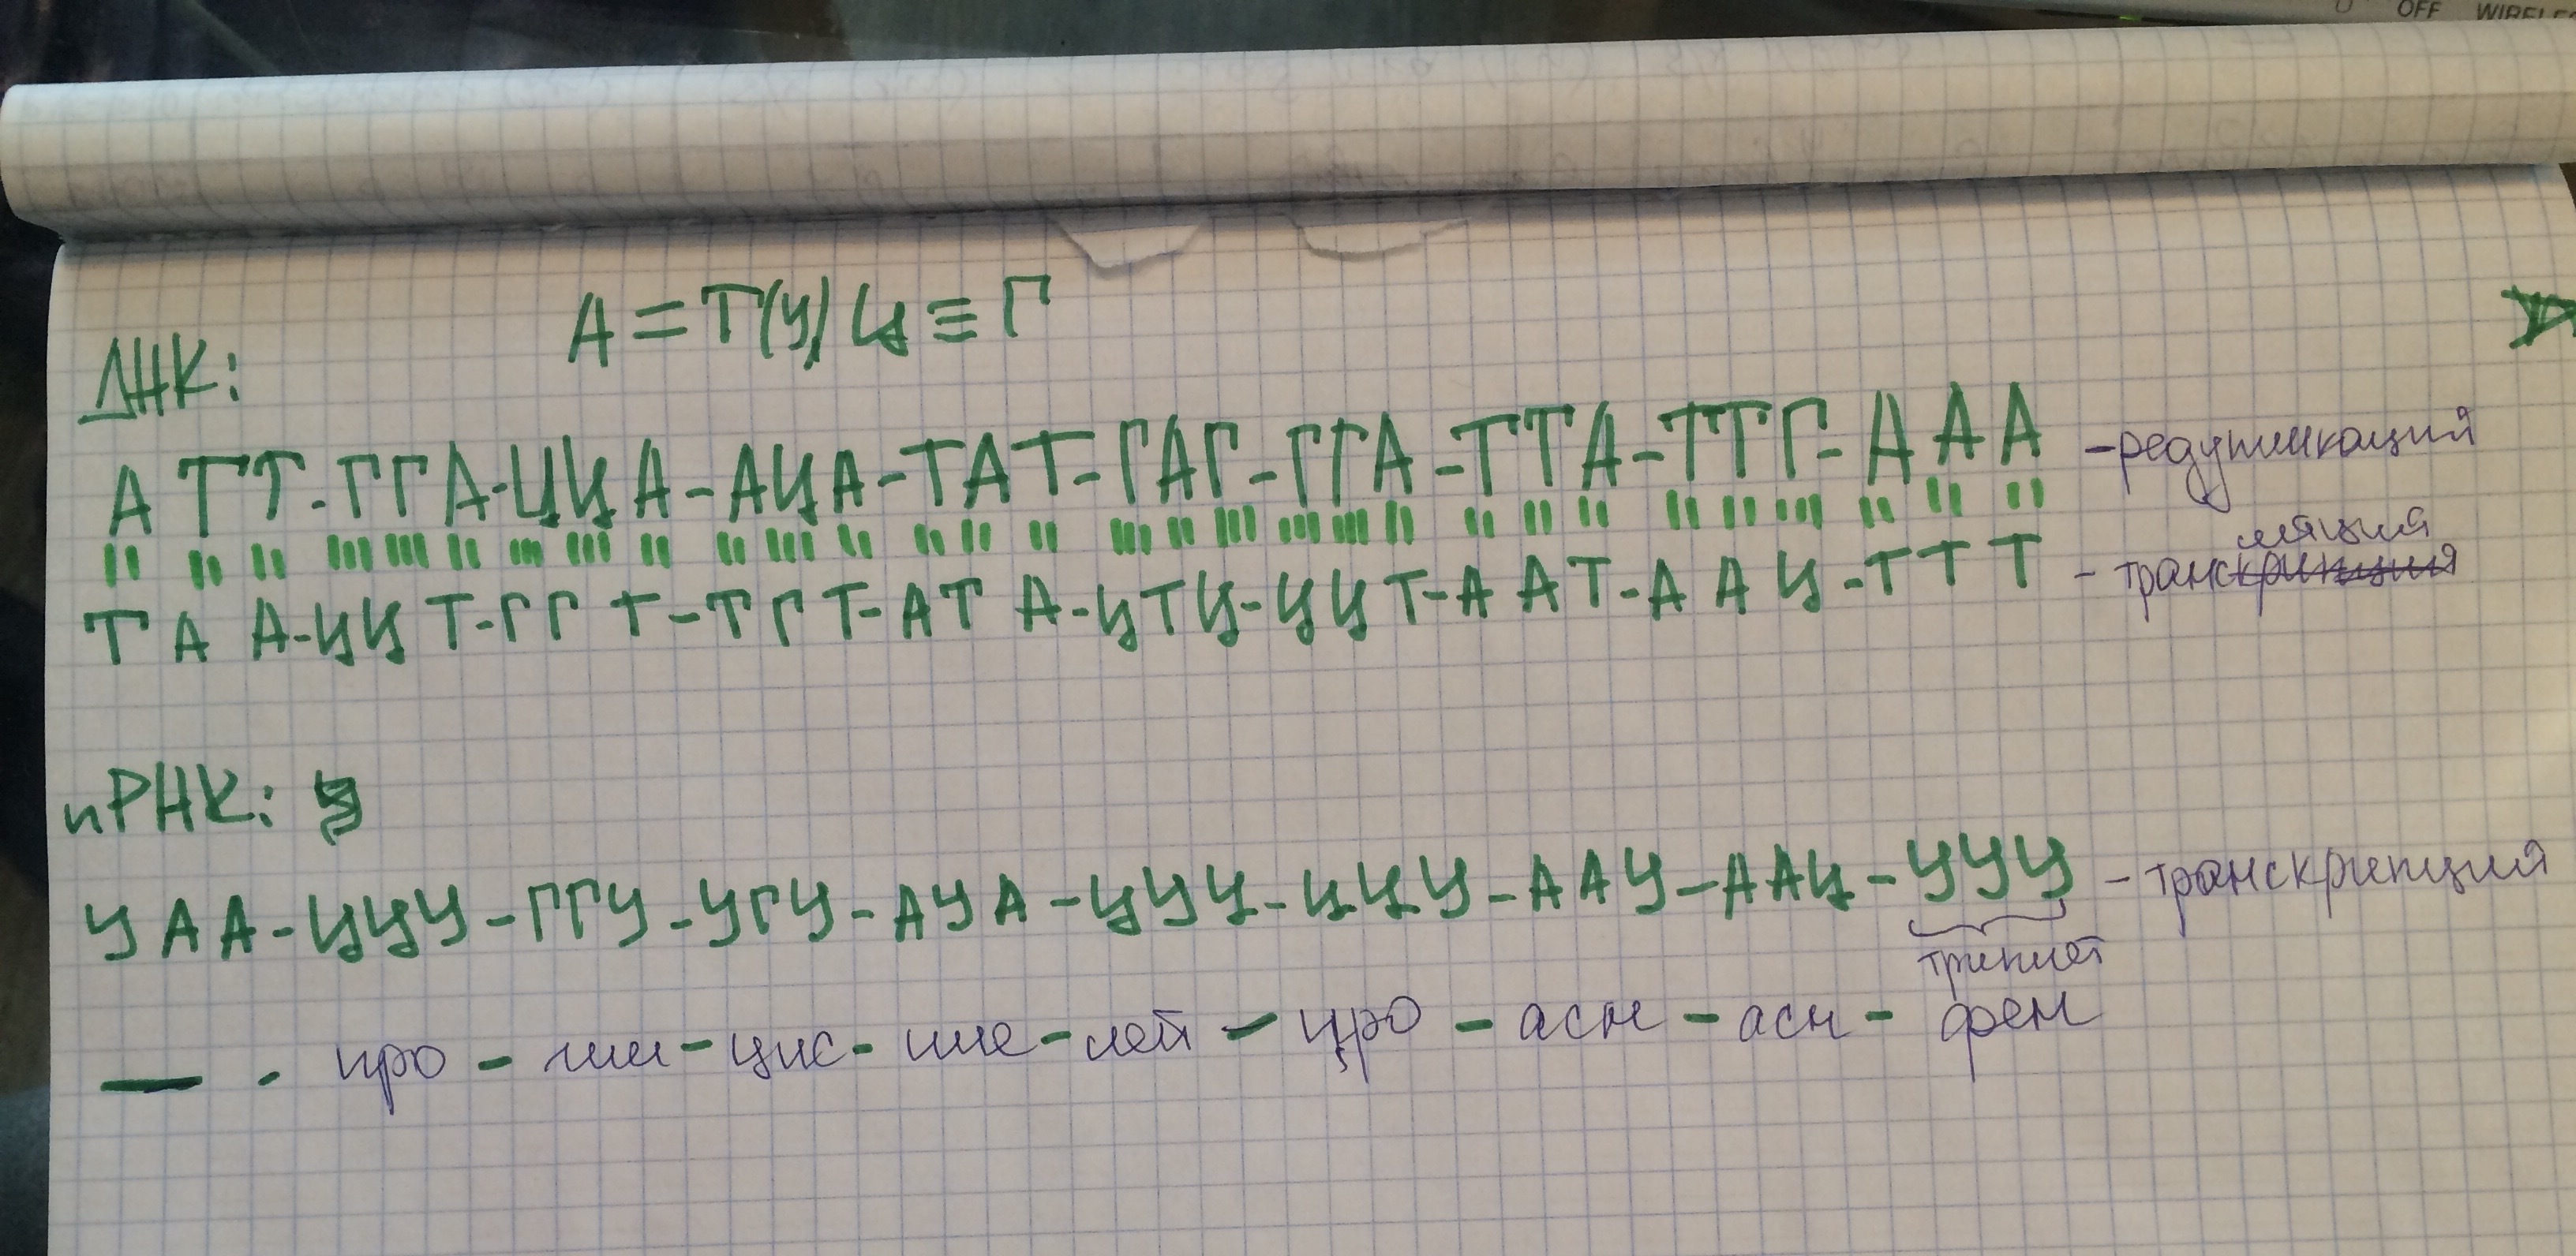 OFF WIRELE
А = Т(У) Ц ≡ Г
ДНК:
А Т Т - Г Г А - Ц Ц А - А Ц А - Т А Т - Г А Г - Г Г А - Т Т А - Т Т Г - А А А - редупликация
ляция
Т А А - Ц Ц Т - Г Г Т - Т Г Т - А Т А - Ц Т Ц - Ц Ц Т - А А Т - А А Ц - Т Т Т - транскрипция
иРНК:
У А А - Ц Ц У - Г Г У - У Г У - А У А - Ц У Ц - Ц Ц У - А А У - А А Ц - У У У - транскрипция
триплет
— - про - гли - цис - иле - лей - про - асн - асн - фен